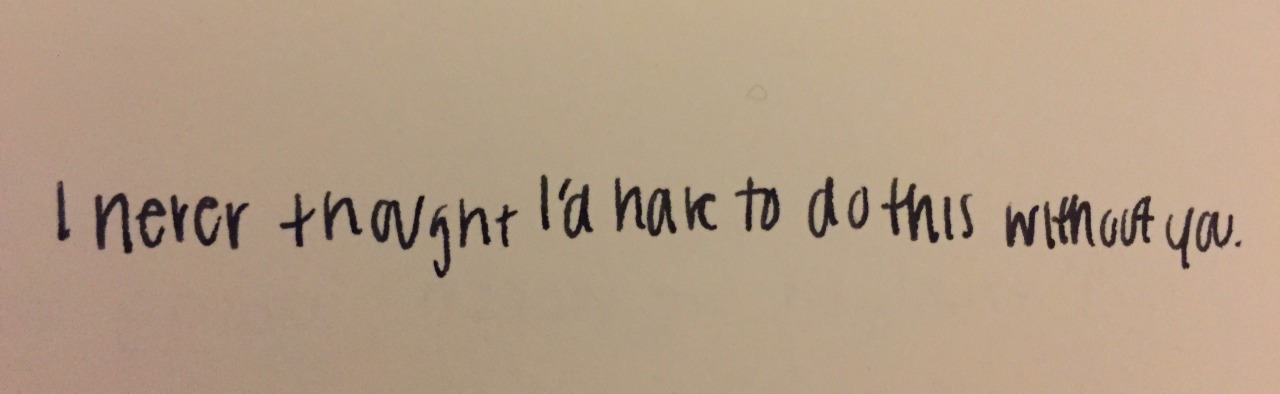 I never thought I'd have to do this without you.